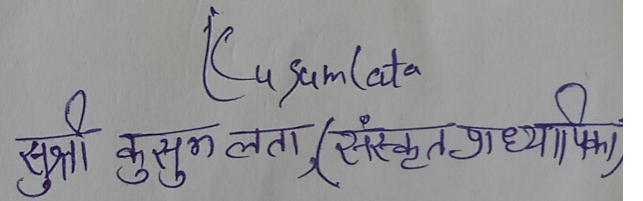 Kusumlata
सुश्री कुसुम लता, (संस्कृत प्राध्यापिका)